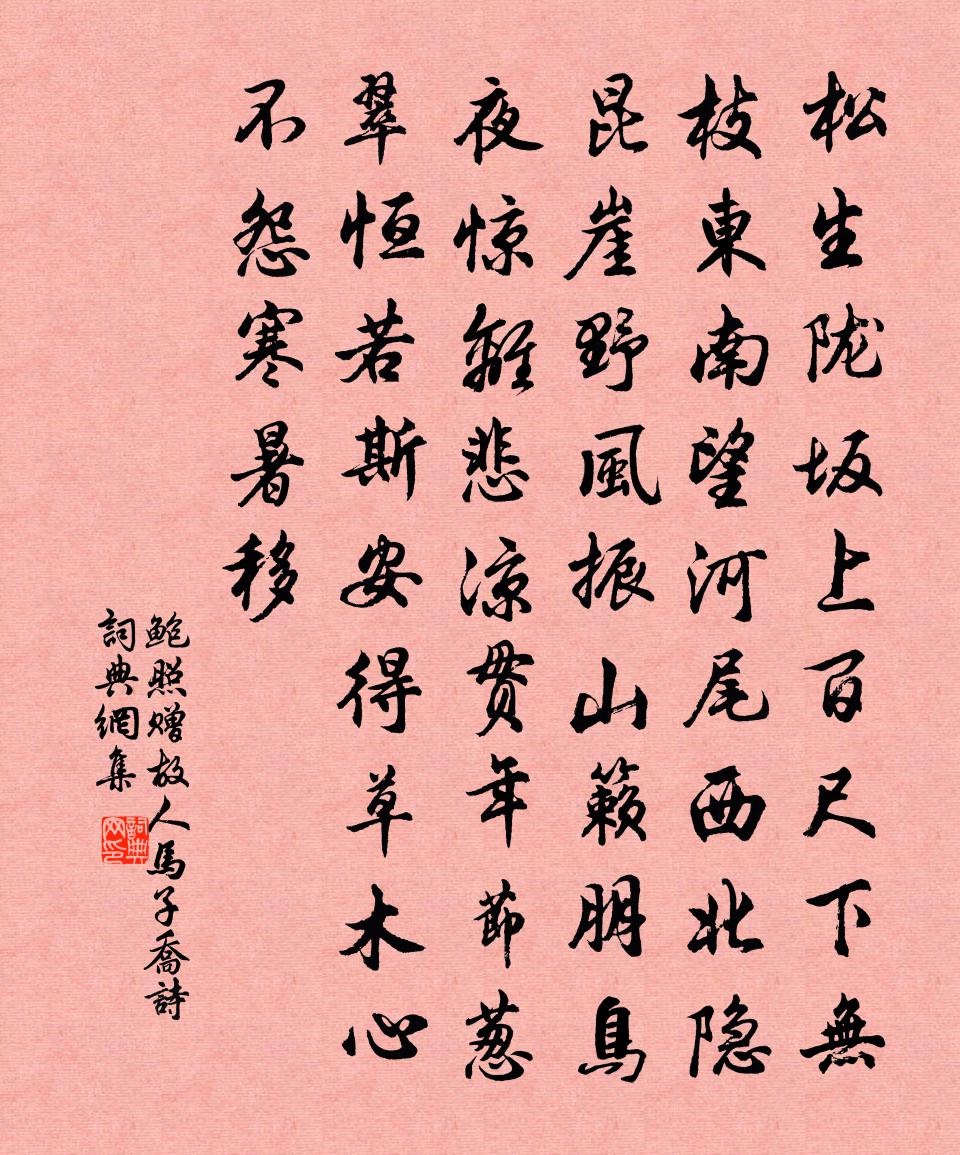 松生陇坂上百尺下無
枝東南望河尾西北隐
昆崖野風振山籁朋鳥
夜惊離悲凉贯年節葱
翠恒若斯安得草木心
不怨寒暑移
鲍照赠故人馬子喬詩
詞典網集
詞典网印